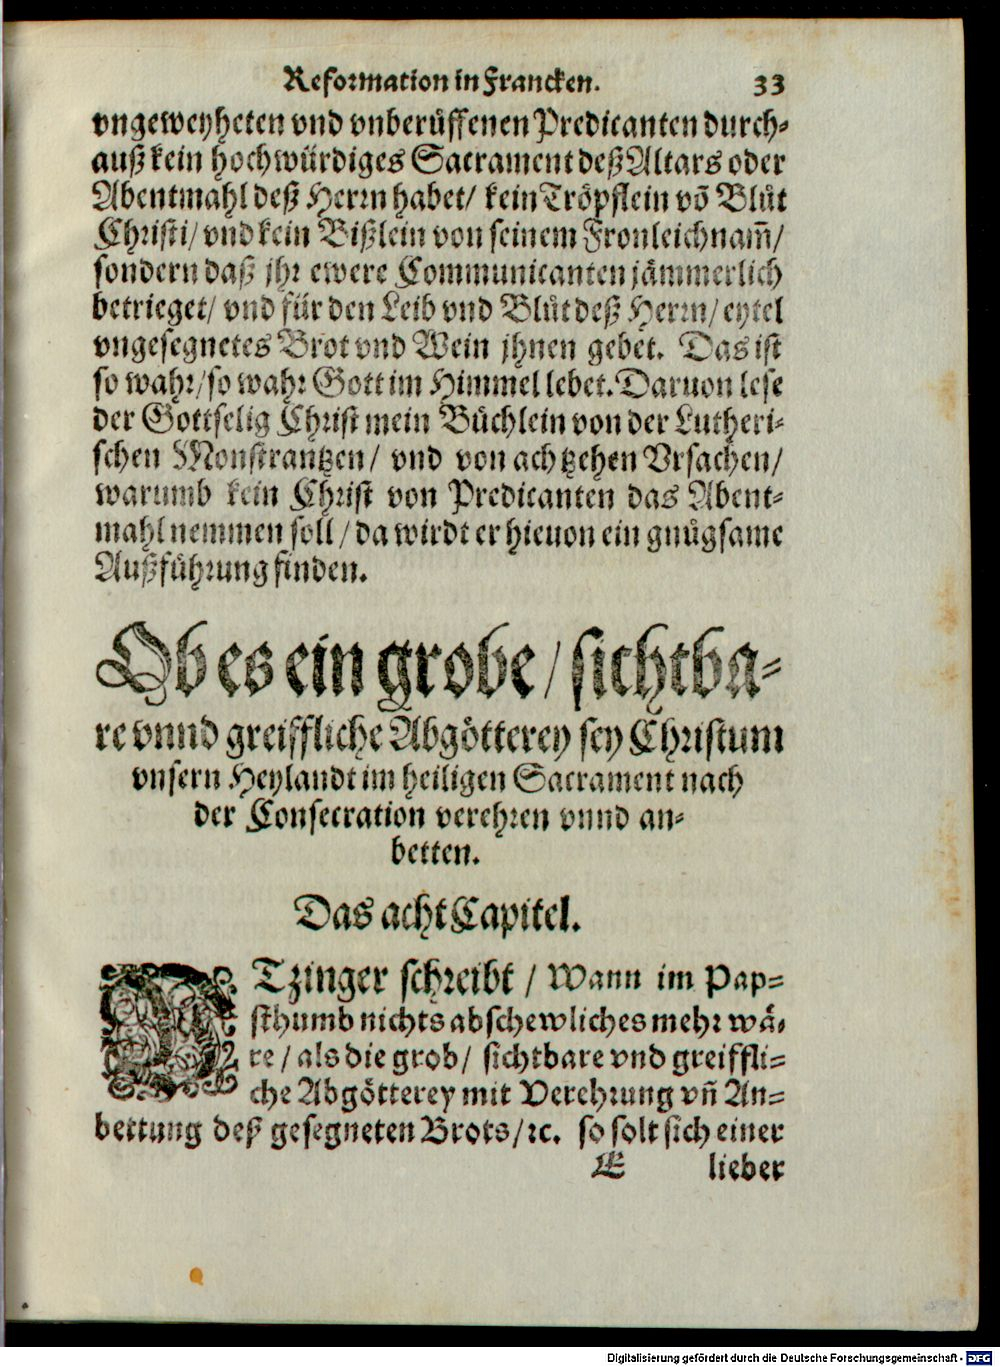 Reformation in Francken. 33
vngeweyheten vnd vnberůffenen Predicanten durch-
auß kein hochwürdiges Sacrament deß Altars oder
Abentmahl deß Herrn habet/ kein Tröpflein võ Blůt
Christi/ vnd kein Bißlein von seinem Fronleichnam̃/
sondern daß jhr ewere Communicanten jämmerlich
betrieget/ vnd für den Leib vnd Blůt deß Herrn/ eytel
vngesegnetes Brot vnd Wein jhnen gebet. Das ist
so wahr/ so wahr Gott im Himmel lebet. Daruon lese
der Gottselig Christ mein Büchlein von der Lutheri-
schen Monstrantzen/ vnd von achtzehen Vrsachen/
warumb kein Christ von Predicanten das Abent-
mahl nemmen soll/ da wirdt er hieuon ein gnůgsame
Außführung finden.
Ob es ein grobe/ sichtba-
re vnnd greiffliche Abgötterey sey Christum
vnsern Heylandt im heiligen Sacrament nach
der Consecration verehren vnnd an-
betten.
Das acht Capitel.
TZinger schreibt/ Wann im Pap-
sthumb nichts abschewliches mehr wä-
re/ als die grob/ sichtbare vnd greiffli-
che Abgötterey mit Verehrung vñ An-
bettung deß gesegneten Brots/ ꝛc. so solt sich einer
E lieber
Digitalisierung gefördert durch die Deutsche Forschungsgemeinschaft - DFG